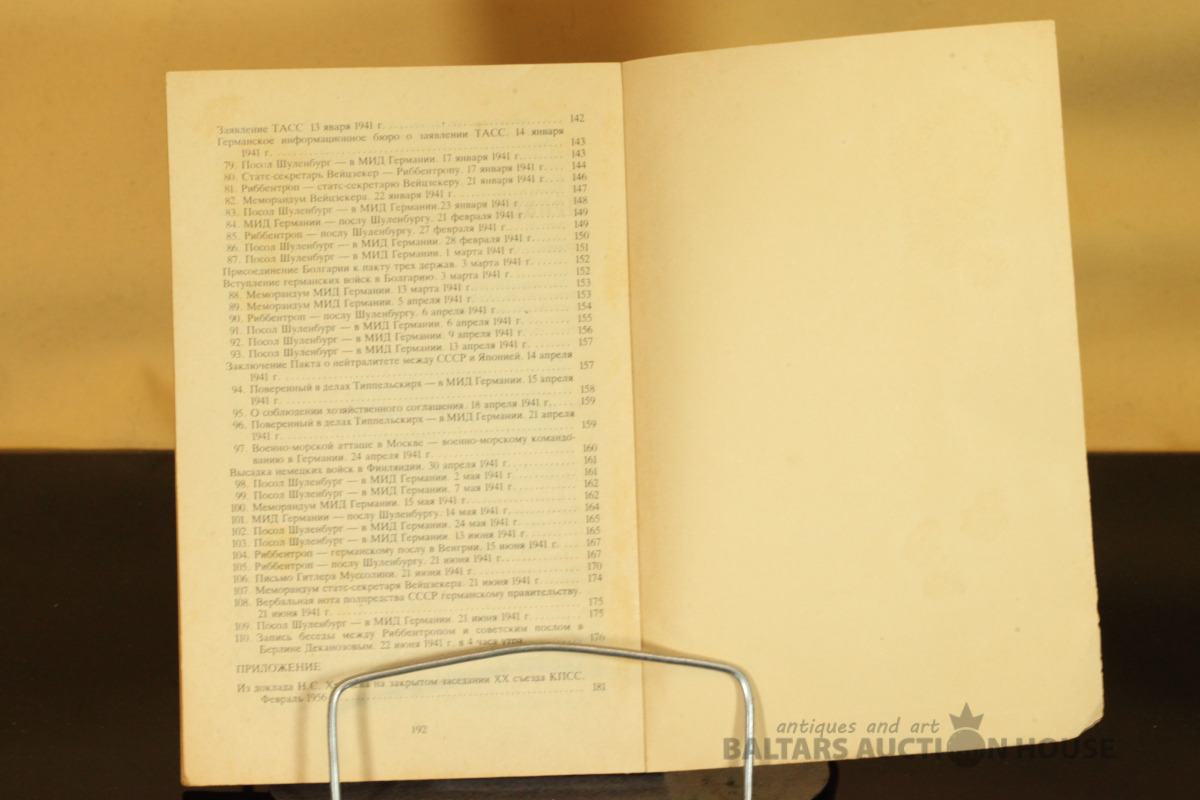 Заявление ТАСС 13 яваря 1941 г. 142
Германское информационное бюро о заявлении ТАСС. 14 января
1941 г. 143
79. Посол Шуленбург — в МИД Германии. 17 января 1941 г. 143
80. Статс-секретарь Вейцзекер — Риббентропу. 17 января 1941 г. 144
81. Риббентроп — статс-секретарю Вейцзекеру. 21 января 1941 г. 146
82. Меморандум Вейцзекера. 22 января 1941 г. 147
83. Посол Шуленбург — в МИД Германии.23 января 1941 г. 148
84. МИД Германии — послу Шуленбургу. 21 февраля 1941 г. 149
85. Риббентроп — послу Шуленбургу. 27 февраля 1941 г. 149
86. Посол Шуленбург — в МИД Германии. 28 февраля 1941 г. 150
87. Посол Шуленбург — в МИД Германии. 1 марта 1941 г. 151
Присоединение Болгарии к пакту трех держав. 3 марта 1941 г. 152
Вступление германских войск в Болгарию. 3 марта 1941 г. 152
88. Меморандум МИД Германии. 13 марта 1941 г. 153
89. Меморандум МИД Германии. 5 апреля 1941 г. 153
90. Риббентроп — послу Шуленбургу. 6 апреля 1941 г. 154
91. Посол Шуленбург — в МИД Германии. 6 апреля 1941 г. 155
92. Посол Шуленбург — в МИД Германии. 9 апреля 1941 г. 156
93. Посол Шуленбург — в МИД Германии. 13 апреля 1941 г. 157
Заключение Пакта о нейтралитете между СССР и Японией. 14 апреля
1941 г. 157
94. Поверенный в делах Типпельскирх — в МИД Германии. 15 апреля
1941 г. 158
95. О соблюдении хозяйственного соглашения. 18 апреля 1941 г. 159
96. Поверенный в делах Типпельскирх — в МИД Германии. 21 апреля
1941 г. 159
97. Военно-морской атташе в Москве — военно-морскому командо-
ванию в Германии. 24 апреля 1941 г. 160
Высадка немецких войск в Финляндии. 30 апреля 1941 г. 161
98. Посол Шуленбург — в МИД Германии. 2 мая 1941 г. 161
99. Посол Шуленбург — в МИД Германии. 7 мая 1941 г. 162
100. Меморандум МИД Германии. 15 мая 1941 г. 162
101. МИД Германии — послу Шуленбургу. 14 мая 1941 г. 164
102. Посол Шуленбург — в МИД Германии. 24 мая 1941 г. 165
103. Посол Шуленбург — в МИД Германии. 13 июня 1941 г. 165
104. Риббентроп — германскому послу в Венгрии. 15 июня 1941 г. 167
105. Риббентроп — послу Шуленбургу. 21 июня 1941 г. 167
106. Письмо Гитлера Муссолини. 21 июня 1941 г. 170
107. Меморандум статс-секретаря Вейцзекера. 21 июня 1941 г. 174
108. Вербальная нота полпредства СССР германскому правительству.
21 июня 1941 г. 175
109. Посол Шуленбург — в МИД Германии. 21 июня 1941 г. 175
110. Запись беседы между Риббентропом и советским послом в
Берлине Деканозовым. 22 июня 1941 г. в 4 часа утра 176
ПРИЛОЖЕНИЕ
Из доклада Н.С. на закрытом заседании XX съезда КПСС.
Февраль 1956 181
192
antiques and art
BALTARS AUCTION HOUSE